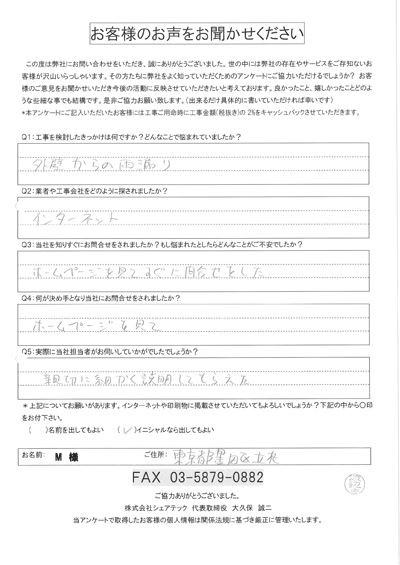 お客様のお声をお聞かせください
この度は弊社にお問い合わせをいただき、誠にありがとうございました。世の中には弊社の存在やサービスをご存知ないお
客様が沢山いらっしゃいます。その方たちに弊社をよく知っていただくためのアンケートにご協力いただけるでしょうか？ お客
様のご意見をお聞かせいただき今後の活動に反映させていきたいと考えております。良かったこと、嬉しかったことどのよ
うな些細な事でも結構です。是非ご協力お願い致します。（出来るだけ具体的に書いていただければ幸いです）
*本アンケートにご記入いただいたお客様には工事ご用命時に工事金額(税抜き)の 2%をキャッシュバックさせていただきます。
Q1：工事を検討したきっかけは何ですか？どんなことで悩まれていましたか？
外壁からの雨漏り
Q2：業者や工事会社をどのように探されましたか？
インターネット
Q3：当社を知りすぐにお問合せをされましたか？もし悩まれたとしたらどんなことがご不安でしたか？
ホームページを見てすぐに問合せをした
Q4：何が決め手となり当社にお問合せをされましたか？
ホームページを見て
Q5：実際に当社担当者がお伺いしていかがでしたでしょうか？
親切に細かく説明してもらえた
＊上記についてお願いがあります。インターネットや印刷物に掲載させていただいてもよろしいでしょうか？下記の中から〇印
をお付下さい。
（　）名前を出してもよい　（✓）イニシャルなら出してもよい
お名前：　M 様　ご住所：　東京都墨田区立花
FAX 03-5879-0882
ご協力ありがとうございました。
株式会社シェアテック 代表取締役 大久保 誠二
当アンケートで取得したお客様の個人情報は関係法規に基づき厳正に管理いたします。